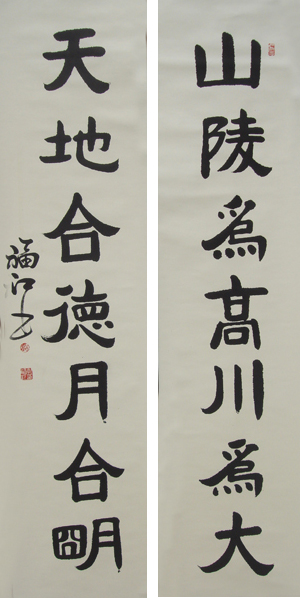 山陵爲高川爲大
天地合德月合明
福江书